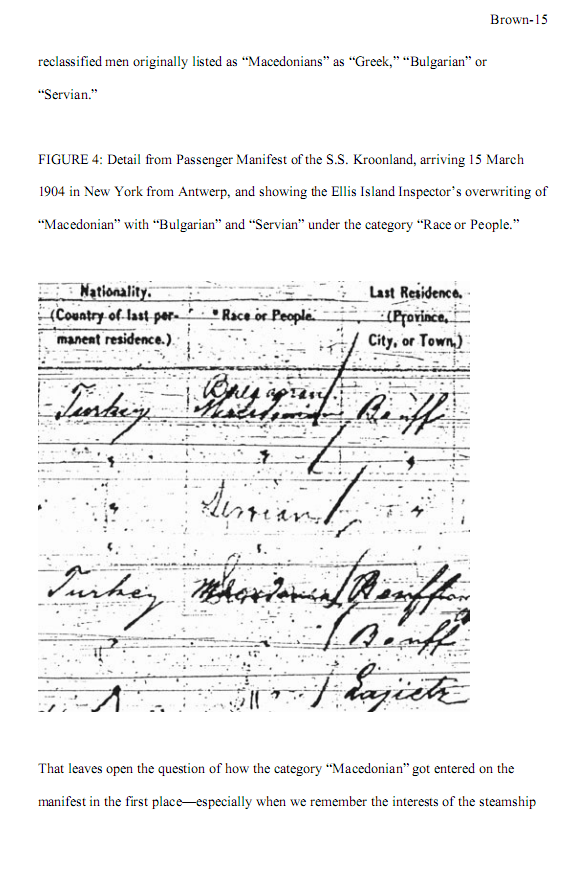 Brown-15
reclassified men originally listed as “Macedonians” as “Greek,” “Bulgarian” or
“Servian.”
FIGURE 4: Detail from Passenger Manifest of the S.S. Kroonland, arriving 15 March
1904 in New York from Antwerp, and showing the Ellis Island Inspector’s overwriting of
“Macedonian” with “Bulgarian” and “Servian” under the category “Race or People.”
Nationality. Last Residence.
(Country of last per- *Race or People. (Province,
manent residence.) City, or Town,)
Bulgarian
Turkey Macedonian Banff
" " "
Servian "
" "
Turkey Macedonian
" Banff
" "
That leaves open the question of how the category “Macedonian” got entered on the
manifest in the first place—especially when we remember the interests of the steamship